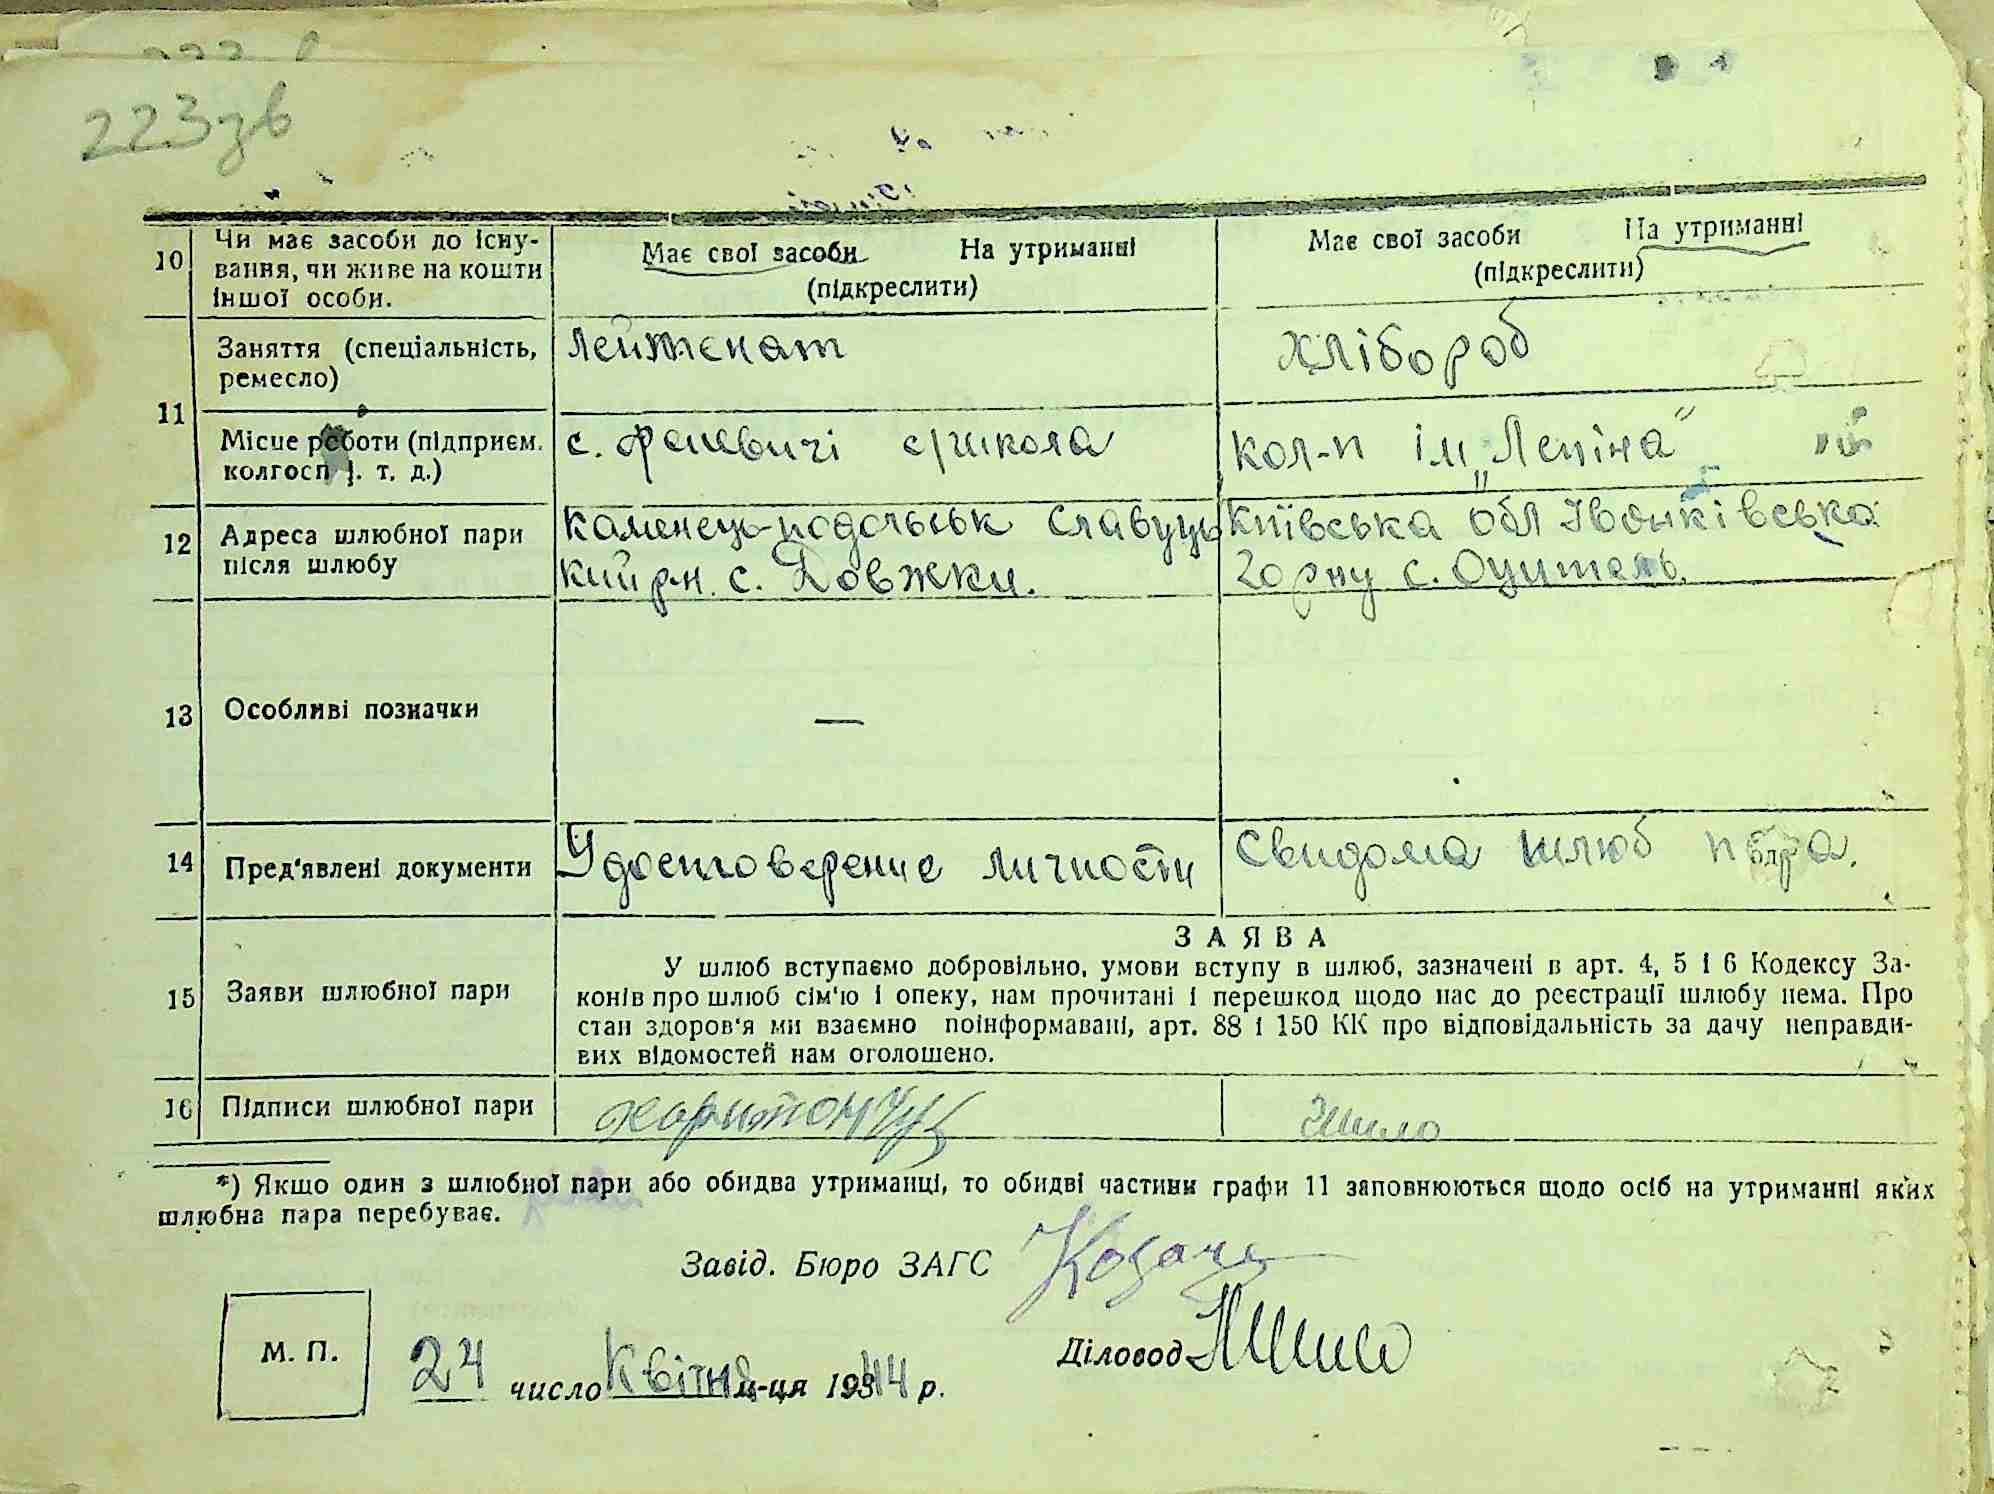 223зв
10 Чи має засоби до існу-
вання, чи живе на кошти
іншої особи.
Має свої засоби На утриманні
(підкреслити)
Має свої засоби На утриманні
(підкреслити)
11 Заняття (спеціальність,
ремесло)
Лейтенат
хлібороб
Місце роботи (підприєм.
колгосп і. т. д.)
с. школа
кол-п ім „Леніна"
12 Адреса шлюбної пари
після шлюбу
Каменець-подольськ Славуць
кий р-н. с. Довжки.
Київська обл Іванківсько
го рну с. Оцитель.
13 Особливі позначки
—
14 Пред'явлені документи
Удостоверение личности
Свидома шлюб пара.
15 Заяви шлюбної пари
ЗАЯВА
У шлюб вступаємо добровільно, умови вступу в шлюб, зазначені в арт. 4, 5 і 6 Кодексу За-
конів про шлюб сім'ю і опеку, нам прочитані і перешкод щодо нас до реєстрації шлюбу нема. Про
стан здоров'я ми взаємно поінформавані, арт. 88 і 150 КК про відповідальність за дачу неправди-
вих відомостей нам оголошено.
16 Підписи шлюбної пари
Харитончук
Шило
*) Якщо один з шлюбної пари або обидва утриманці, то обидві частини графи 11 заповнюються щодо осіб на утриманні яких
шлюбна пара перебуває.
Завід. Бюро ЗАГС
Діловод Шило
М. П.
24 число Квітня м-ця 1944 р.